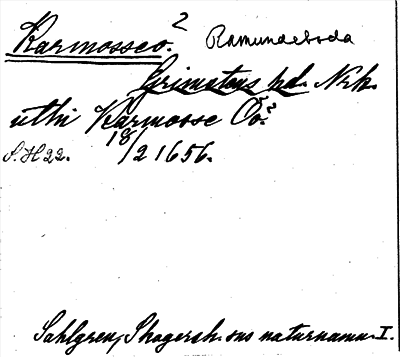 Karmosseö.² Ramundeboda
Grimstens hd. Nrk.
uthi Karmosse Öö.²
S.H 22. 18/2 1656.
Sahlgren, Skagersh. sns naturnamn I.